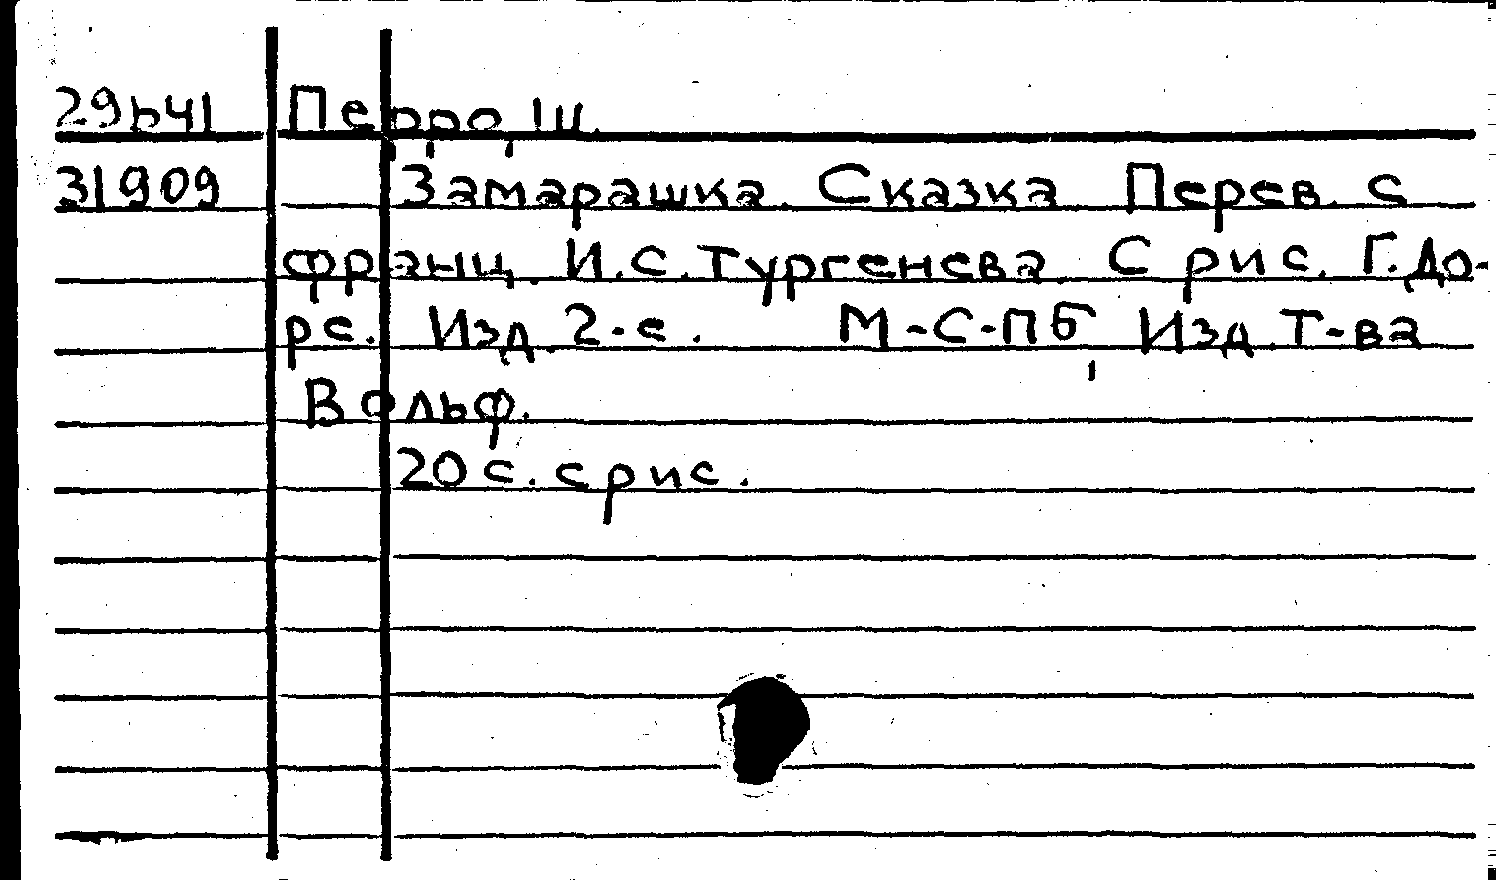 29641 Перро, Ш.
31909 Замарашка. Сказка Перев. с
франц. И.С.Тургенева С рис. Г.До-
ре. Изд. 2-е. М-С-Пб, Изд. Т-ва
Вольф.
20 с. с рис.